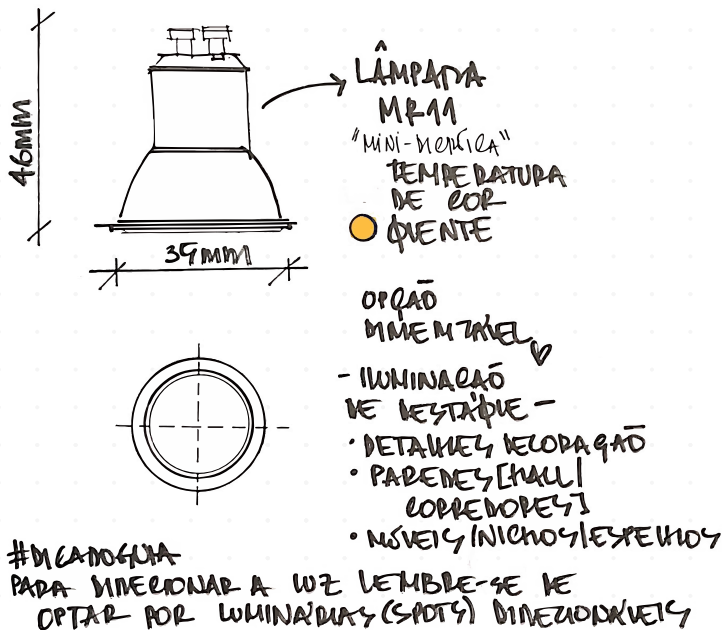 46mm
LÂMPADA
MR11
"MINI-DICRÓICA"
TEMPERATURA
DE COR
QUENTE
35mm
OPÇÃO
DIMERIZÁVEL
- ILUMINAÇÃO
DE DESTAQUE -
• DETALHES DECORAÇÃO
• PAREDES [HALL|
CORREDORES]
• MÓVEIS/NICHOS/ESPELHOS
#DICADOGUIA
PARA DIRECIONAR A LUZ LEMBRE-SE DE
OPTAR POR LUMINÁRIAS (SPOTS) DIRECIONÁVEIS